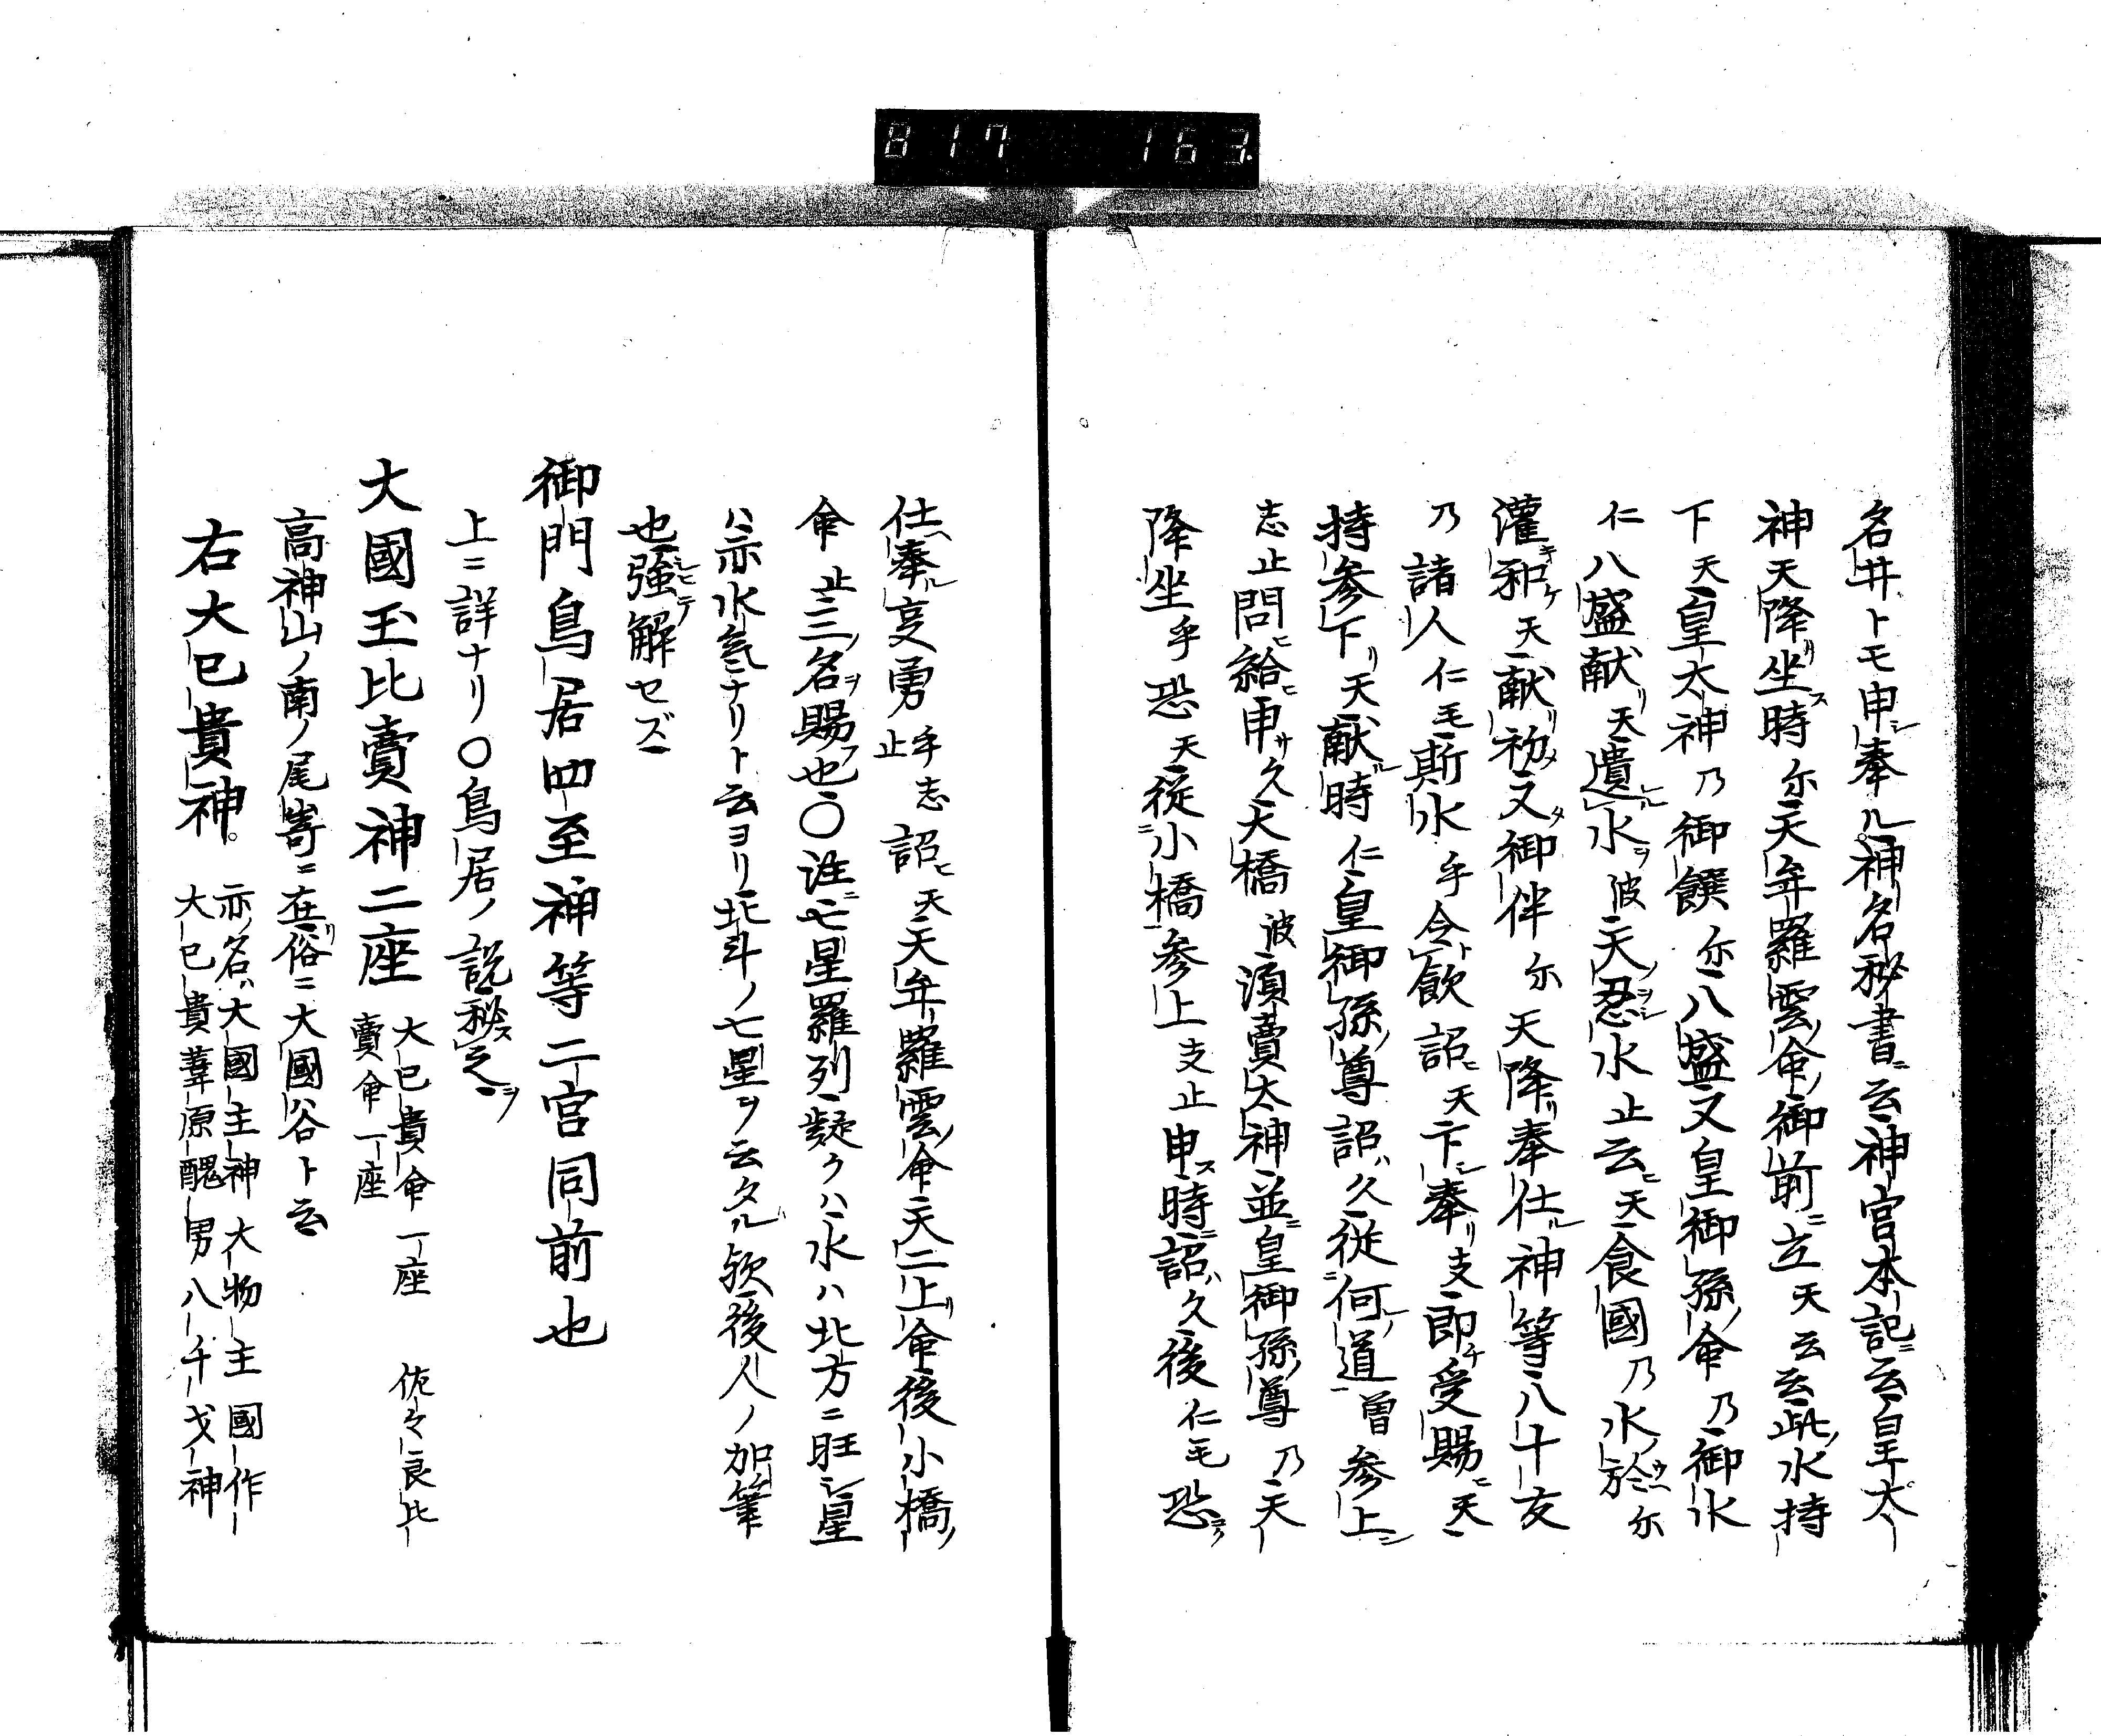 817 163
名井トモ申シ奉ル神名秘書ニ云神宮本記ニ云皇太
神天降リ坐ス時尓天牟羅雲ノ命ノ御前ニ立天云云此ノ水持
下天皇太神乃御饌尓八盛又皇御孫ノ命乃御水
仁八盛献リ天遺ル水ヲ波天ノ忍ヲシ水止云ヒ天食國乃水ノ於ウヘ尓
灌和天献リ初メ又タ御伴尓天降リ奉仕ル神等八十友
乃諸人仁毛斯水乎令ト飲詔ヒ天下シ奉リ支即チ受賜ニ天
持参下リ天献ル時仁皇御孫ノ尊詔ハ久従ニ何レノ道曽参上シ
志止問ヒ給ヒ申サ久天橋波須賣太神並ニ皇御孫ノ尊乃天
降坐乎恐天従ニ小橋参上支止申ス時ニ詔ハ久後仁毛恐
仕ヘ奉ル亊勇乎志止詔ヒ天天牟羅雲ノ命天二上リ命後小橋ノ
命止三ノ名ヲ賜フ也〇注ニ七星羅列疑クハ水ハ北方ニ旺シ星
ハ亦水氣ナリト云ヨリ北斗ノ七星ヲ云タル欤後人ノ加筆
也強シヒテ解セズ
御門鳥居四至神等二宮同前也
上ニ詳ナリ〇鳥居ノ説秘ス之ヲ
大國玉比賣神二座 大己貴命一座 佐々良比
賣命一座
高神山ノ南ノ尾嵜ニ在リ俗ニ大國谷ト云
右大己貴神。 亦ノ名ハ大國主神 大物主 國作
大己貴葦原醜男八千戈神